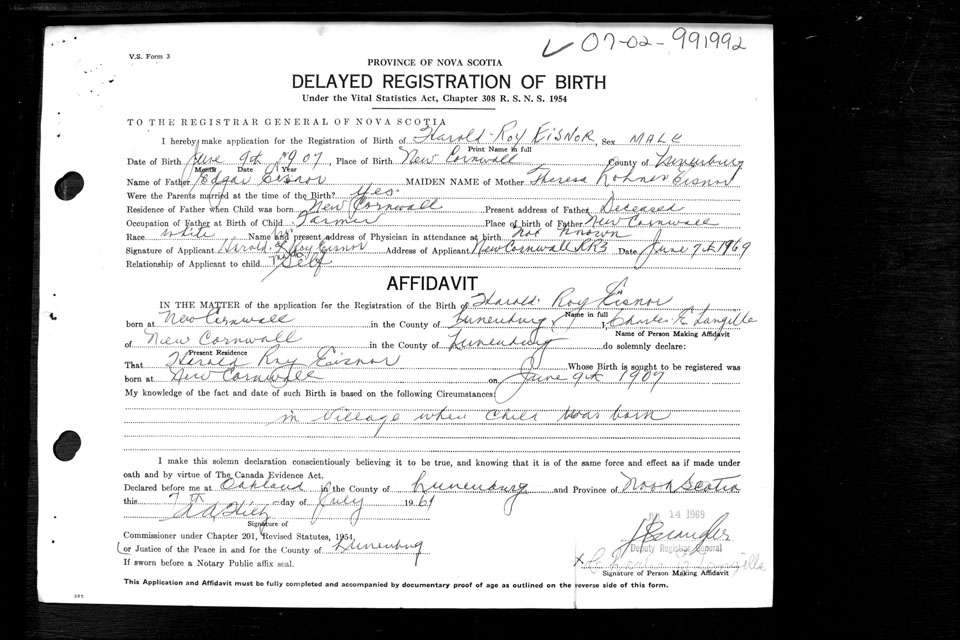 07-02-991992
V.S. Form 3
PROVINCE OF NOVA SCOTIA
DELAYED REGISTRATION OF BIRTH
Under the Vital Statistics Act, Chapter 308 R. S. N. S. 1954
TO THE REGISTRAR GENERAL OF NOVA SCOTIA
I hereby make application for the Registration of Birth of Harold Roy EISNOR, Sex MALE
Print Name in full
Date of Birth June 9th 1907, Place of Birth New Cornwall County of Lunenburg
Month Date Year
Name of Father Edgar Eisnor MAIDEN NAME of Mother Theresa Eisnor
Were the Parents married at the time of the Birth? Yes.
Residence of Father when Child was born New Cornwall Present address of Father Deceased
Occupation of Father at Birth of Child Farmer Place of birth of Father New Cornwall
Race White Name and present address of Physician in attendance at birth Not Known
Signature of Applicant Harold Roy Eisnor Address of Applicant New Cornwall RR3 Date June 7th 1969
Relationship of Applicant to child Self
AFFIDAVIT
IN THE MATTER of the application for the Registration of the Birth of Harold Roy Eisnor
Name in full
born at New Cornwall in the County of Lunenburg, I, Charles E Langille
Name of Person Making Affidavit
of New Cornwall in the County of Lunenburg do solemnly declare:
Present Residence
That Harold Roy Eisnor Whose Birth is sought to be registered was
born at New Cornwall on June 9th 1907
My knowledge of the fact and date of such Birth is based on the following Circumstances:
in Village when Child was born
I make this solemn declaration conscientiously believing it to be true, and knowing that it is of the same force and effect as if made under
oath and by virtue of The Canada Evidence Act.
Declared before me at Oakland in the County of Lunenburg and Province of Nova Scotia
this 7th day of July 19
Signature of
14 1969
Commissioner under Chapter 201, Revised Statutes, 1954,
Deputy Registrar General
(or Justice of the Peace in and for the County of Lunenburg
If sworn before a Notary Public affix seal.
x Charles E Langille
Signature of Person Making Affidavit
This Application and Affidavit must be fully completed and accompanied by documentary proof of age as outlined on the reverse side of this form.